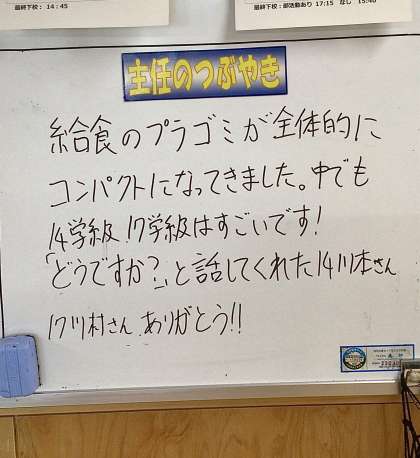 最終下校：14：45
最終下校：部活動あり 17:15 なし 15:40
主任のつぶやき
給食のプラゴミが全体的に
コンパクトになってきました。中でも
14学級、17学級はすごいです!
「どうですか?」と話してくれた14川本さん
17川村さん、ありがとう!!